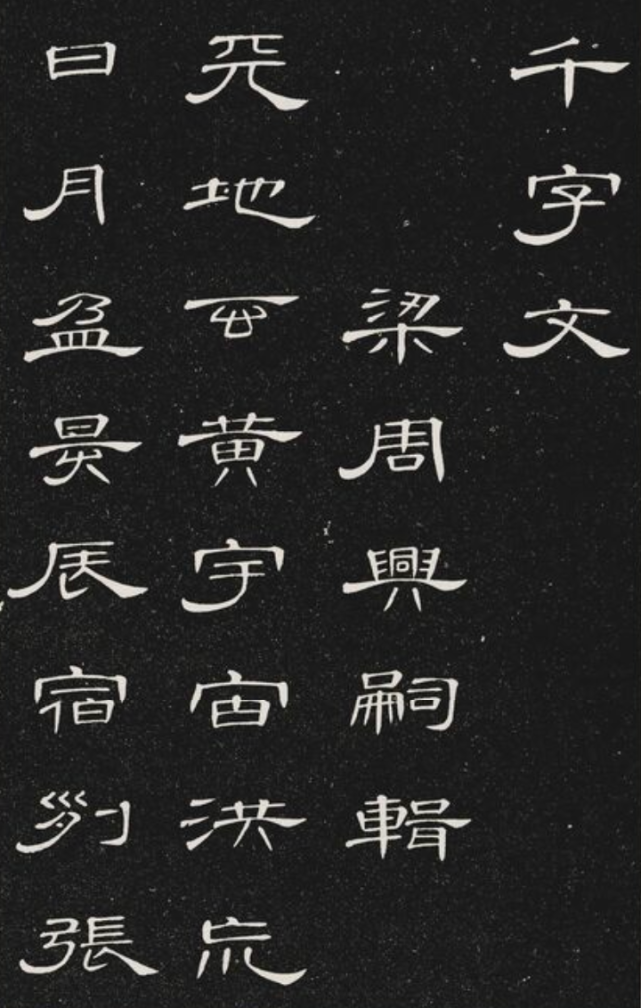 千字文
梁周興嗣輯
天地玄黄宇宙洪荒
日月盈昃辰宿列張